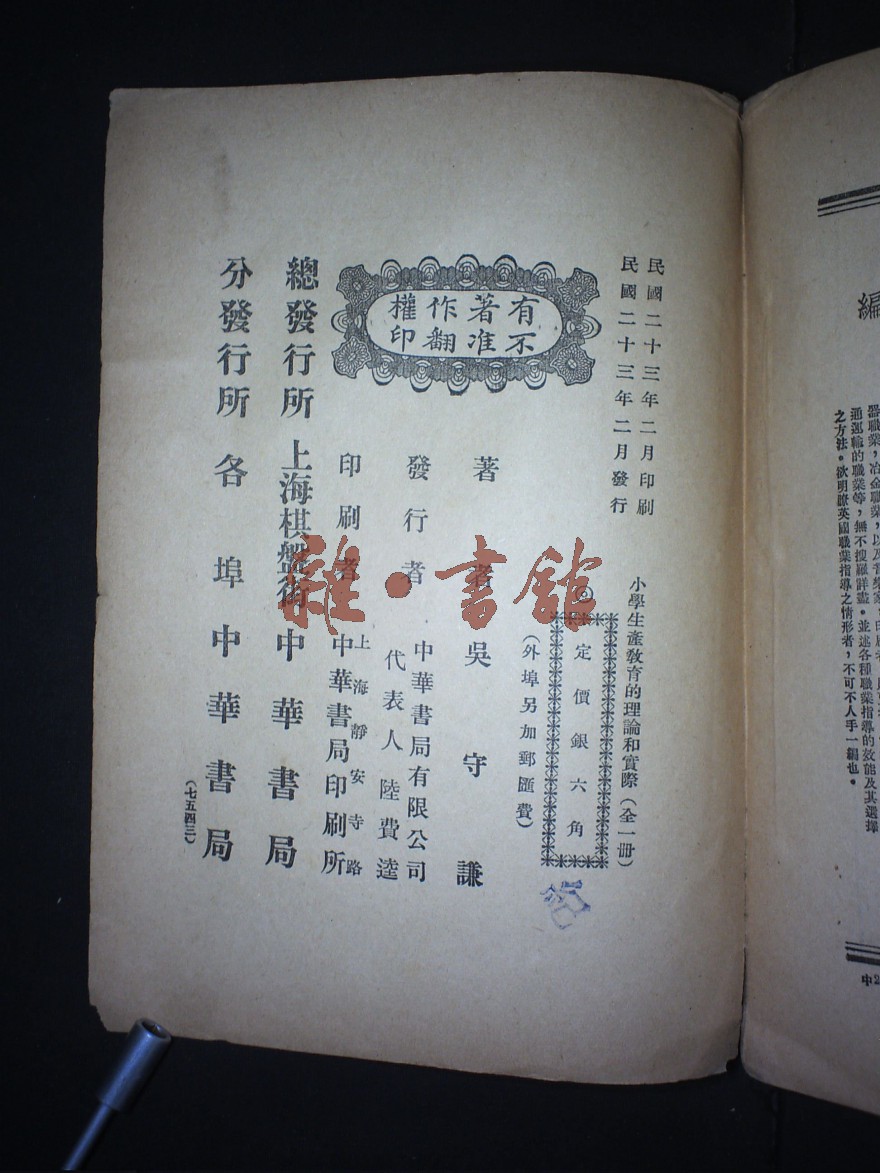 編
器職業，冶金職業，以及音樂家
通運輸的職業等，無不搜羅詳盡。並述各種職業指導的效能及其選擇
之方法。欲明瞭英國職業指導之情形者，不可不人手一編也。
中2
民國二十三年二月印刷
民國二十三年二月發行
小學生產教育的理論和實際（全一冊）
◎定價銀六角
（外埠另加郵匯費）
有著作權
不准翻印
著者 吳守謙
發行者 中華書局有限公司
代表人 陸費逵
印刷者 上海靜安寺路
中華書局印刷所
總發行所 上海棋盤街 中華書局
分發行所 各埠 中華書局
（七五四三）
雜·書館